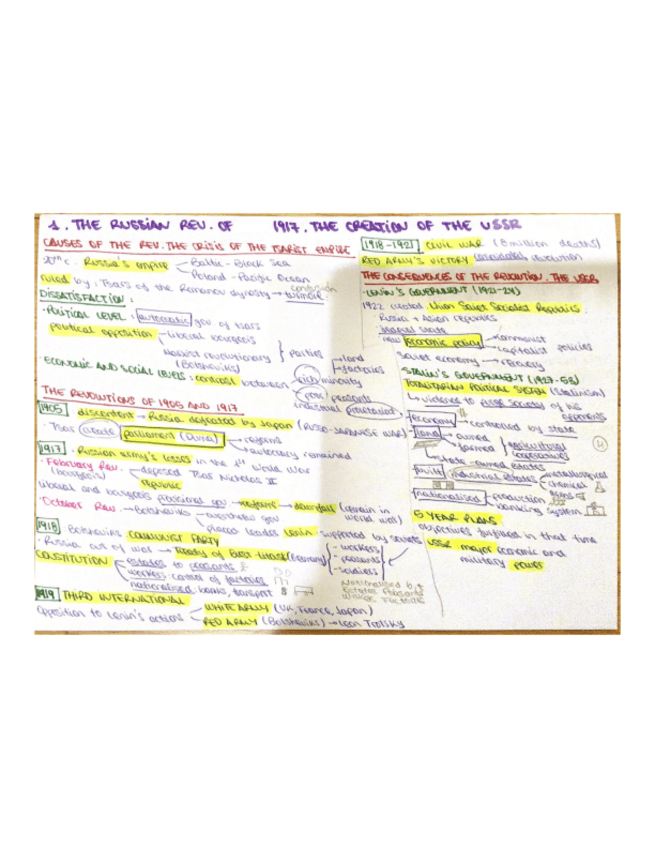 1. THE RUSSIAN REV. OF 1917. THE CREATION OF THE USSR
CAUSES OF THE REV. THE CRISIS OF THE TSARIST EMPIRE
20th c. Russia's empire
Baltic - Black Sea
Poland - Pacific Ocean
ruled by: Tsars of the Romanov dynasty → turmoil
confusion
DISSATISFACTION:
· POLITICAL LEVEL: autocratic gov of tsars
political opposition
liberal bourgeois
Marxist revolutionary
(Bolsheviks)
} parties
· ECONOMIC AND SOCIAL LEVELS: contrast between
rich minority
land
factories
poor peasants
industrial proletariat
THE REVOLUTIONS OF 1905 AND 1917
1905 discontent → Russia defeated by Japan (RUSSO-JAPANESE WAR)
· Tsar create parliament (Duma)
reforms
autocracy remained
1917 · Russian army's losses in the 1st World War
· February Rev.
(bourgeois)
deposed Tsar Nicholas II
republic
liberal and bourgeois provisional gov → reforms → downfall (remain in
world war)
· October Rev → Bolsheviks
overthrew gov
placed leader Lenin supported by soviets
- workers
- peasants
- soldiers
1918 Bolsheviks COMMUNIST PARTY
· Russia out of war → Treaty of Brest-Litovsk (Germany)
CONSTITUTION
estates to peasants
workers: control of factories
nationalised banks, transport
Nationalised b, t
Estates Peasants
Workers Factories
1919 THIRD INTERNATIONAL
Opposition to Lenin's actions
WHITE ARMY (UK, France, Japan)
RED ARMY (Bolsheviks) → Leon Trotsky
1918-1921 CIVIL WAR (8 million deaths)
RED ARMY'S VICTORY revolution
THE CONSEQUENCES OF THE REVOLUTION. THE USSR
LENIN'S GOVERNMENT (1921-24)
1922 created Union Soviet Socialist Republics
Russia + Asian republics
state
new economic policy
communist
capitalist
policies
Soviet economy → recovery
STALIN'S GOVERNMENT (1927-53)
TOTALITARIAN POLITICAL SYSTEM (Stalinism)
violence to purge society of his
opponents
economy → controlled by state
land
owned
farmed
agricultural
cooperatives
state-owned estates
4
built industrial estates
metallurgical
chemical
arms
nationalised
production
banking system
5 YEAR PLANS
objectives fulfilled in that time
USSR major economic and
military power